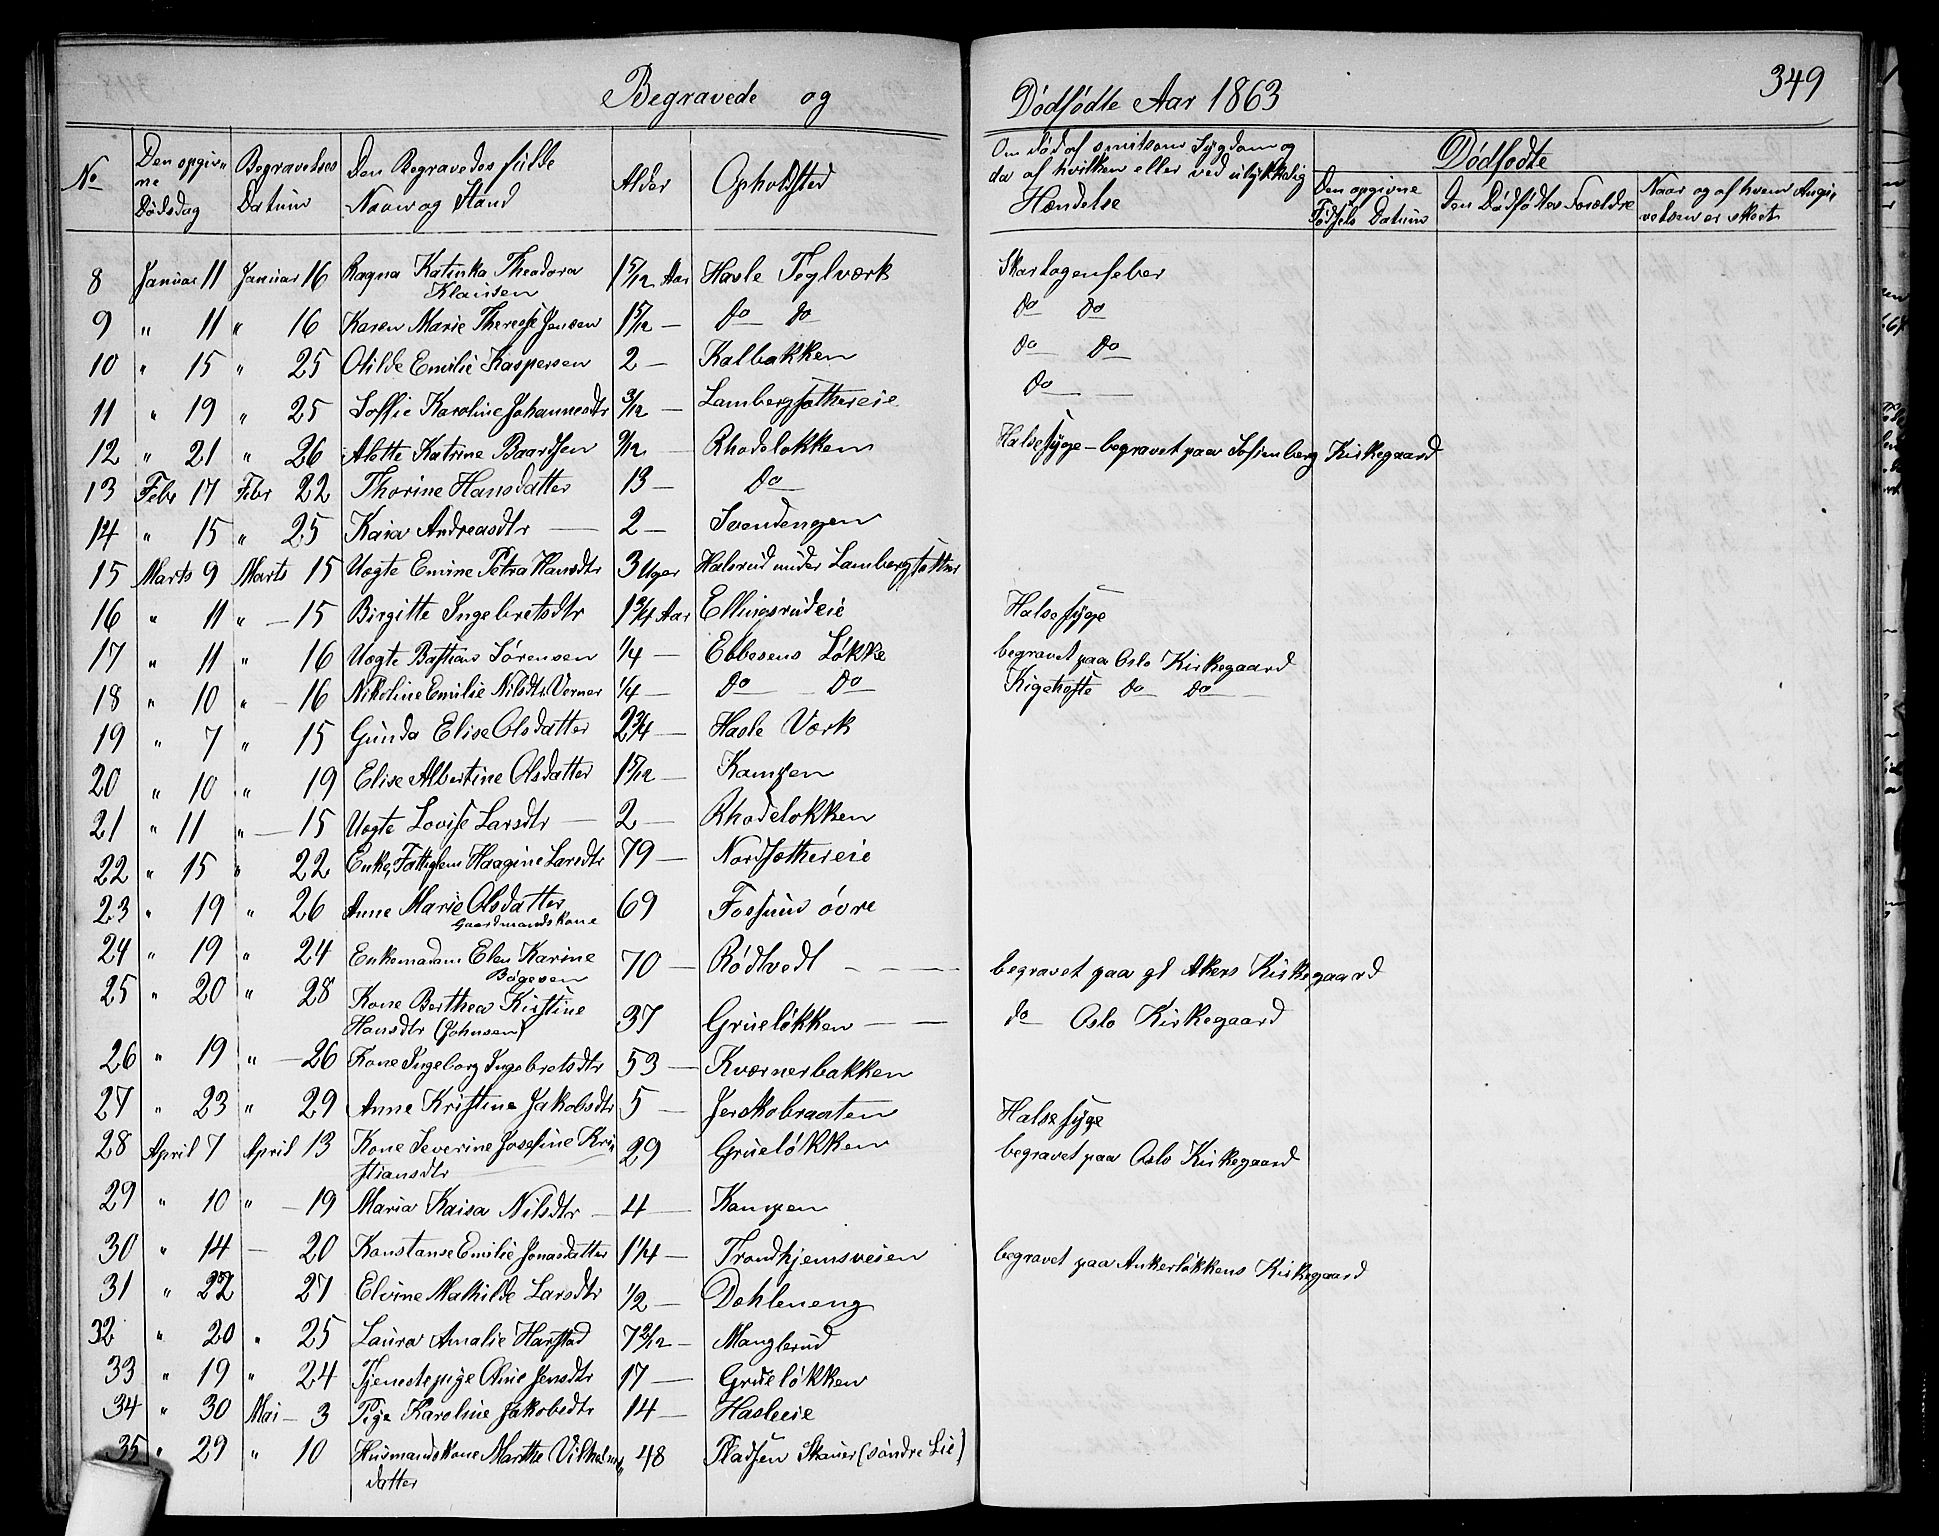 349
Begravede og Dödfödte Aar 1863
No | Den opgivne Dödsdag | Begravelses Datum | Den Begravedes fulde Navn og Stand | Alder | Opholdsted | Om död af smitsom Sygdom og da af hvilken eller ved ulykkelig Hændelse | Dödfødte
Den opgivne Fødsels Datum | Den Dödfødtes Forældre | Naar og af hvem Angivelsen er skeet
8 Januar 11 Januar 16 Ragna Katinka Theodora Klausen 1 5/12 Aar Hasle Teglværk Skarlagensfeber
9 " 11 " 16 Karen Marie Therese Jensen 1 5/12 — do do do do
10 " 15 " 25 Otilde Emilie Kaspersen 2 — Kalbakken do do
11 " 19 " 25 Soffie Karoline Johannesdtr 3/12 — Lambergsæthereie do
12 " 21 " 26 Alette Katrine Baardsen 9/12 — Rhodeløkken Halsesyge – begravet paa Sofienberg Kirkegaard
13 Febr 17 Febr 22 Thorine Hansdatter 13 — do
14 " 15 " 25 Kaia Andreasdtr — 2 — Svendengen
15 Marts 9 Marts 15 Uægte Emine Petra Hansdtr 3 Uger Halsrud under
16 " 11 " — 15 Birgitte Ingebretsdtr 1 3/4 Aar Ellingsrudeie Halsesyge
17 " 11 " 16 Uægte Bastian Sørensen 1/4 — Ebbesens Løkke begravet paa Oslo Kirkegaard
18 " 10 " — 16 Nikoline Emilie Nilsdtr Verner 1/4 — do do Kigehoste do do
19 " 7 " 15 Gunda Elise Olsdatter 2 3/4 — Hasle Værk
20 " 10 " 19 Elise Albertine Olsdatter 1 5/12 — Kampen
21 " 11 " — 15 Uægte Lovise Larsdtr — 2 — Rhodeløkken
22 " 15 " 22 Enke, Fattiglem Haagine Larsdtr 79 — Nordsæthereie
23 " 19 " 26 Anne Marie Olsdatter Gaardmandskone 69 Fossum övre
24 " 19 " 24 Enkemadam Elen Karine 70 — Rödtvedt — — — begravet paa gl Akers Kirkegaard
25 " 20 " 28 Kone Berthea Kirstine Hansdtr (Johnsen) 37 Grueløkken — — do Oslo Kirkegaard
26 " 19 " — 26 Kone Ingeborg Ingebretsdtr 53 — Kværnerbakken
27 " 23 " 29 Anne Kristine Jakobsdtr 5 — Jerskobraaten Halsesyge
28 April 7 April 13 Kone Severine Josefine Kristiansdtr 29 Grueløkken begravet paa Oslo Kirkegaard
29 " 10 " — 19 Maria Kaisa Nilsdtr — 4 — Kampen
30 " 14 — 20 Konstanse Emilie Jonasdatter 1 1/4 — Trondhjemsveien begravet paa Ankerløkkens Kirkegaard
31 " 22 27 Elvine Mathilde Larsdtr 1/2 — Dehleneng
32 " 20 " 25 Laura Amalie Harstad 7 2/12 — Manglerud
33 " 19 " 24 Tjenestepige Oline Jensdtr 17 — Grueløkken
34 " 30 Mai — 3 Pige Karoline Jakobsdtr 14 — Hasleeie
35 " 29 " 10 Husmandskone Marthe Vilhelmsdatter 48 Pladsen Skauer (søndre Lie)